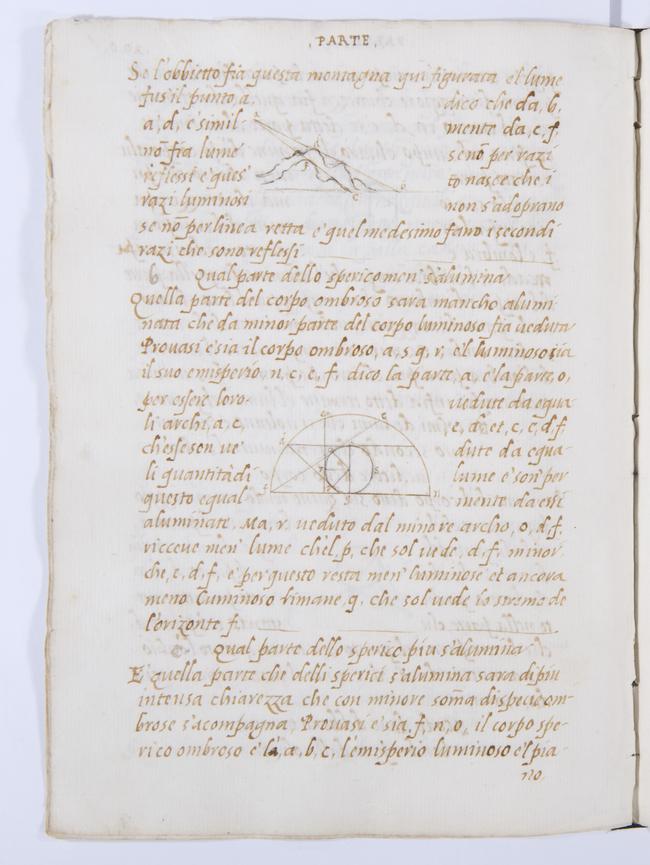 PARTE,
Se l'obbietto fia questa montagna qui figurata et lume
fusil punto, a. dico che da, b,
a, d, e simil- mente da, c, f
nō fia lume se nō per razi
reflessi e ques to nasce che i
razi luminosi non s'adoprano
se nō per linea retta e quel medesimo fano i secondi
razi che sono reflessi
6 Qual parte dello sperico men' s'alumina
Quella parte del corpo ombroso sara mancho alumi-
nata che da minor parte del corpo luminoso fia veduta
Provasi e sia il corpo ombroso, a, s, q, r, e'l luminoso sia
il suo emisperio, n, c, e, f, dico, la parte, a, e la parte, o,
per essere loro vedute da equa-
li archi, a, c, e, d, et, c, e, d, f
ch'esse son ve dute da equa-
li quantità di lume e son' per
questo equal mente da essi
aluminate, Ma, r, veduto dal minore archo, o, d, f,
riceeve men' lume ch'el, p, che sol vede, d, f, minor
che, e, d, f, e per questo resta men' luminose et ancora
meno Luminoso rimane, q, che sol vede lo stremo de
l'orizonte, f,
Qual parte dello sperico piu s'alumina
E quella parte che delli sperici s'alumina sara di piu
intensa chiarezza che con minore soma di specie om-
brose s'acompagna Provasi e sia, f, n, o, il corpo spe-
rico ombroso e la, a, b, c, l'emisperio luminoso e'l pia-
no,